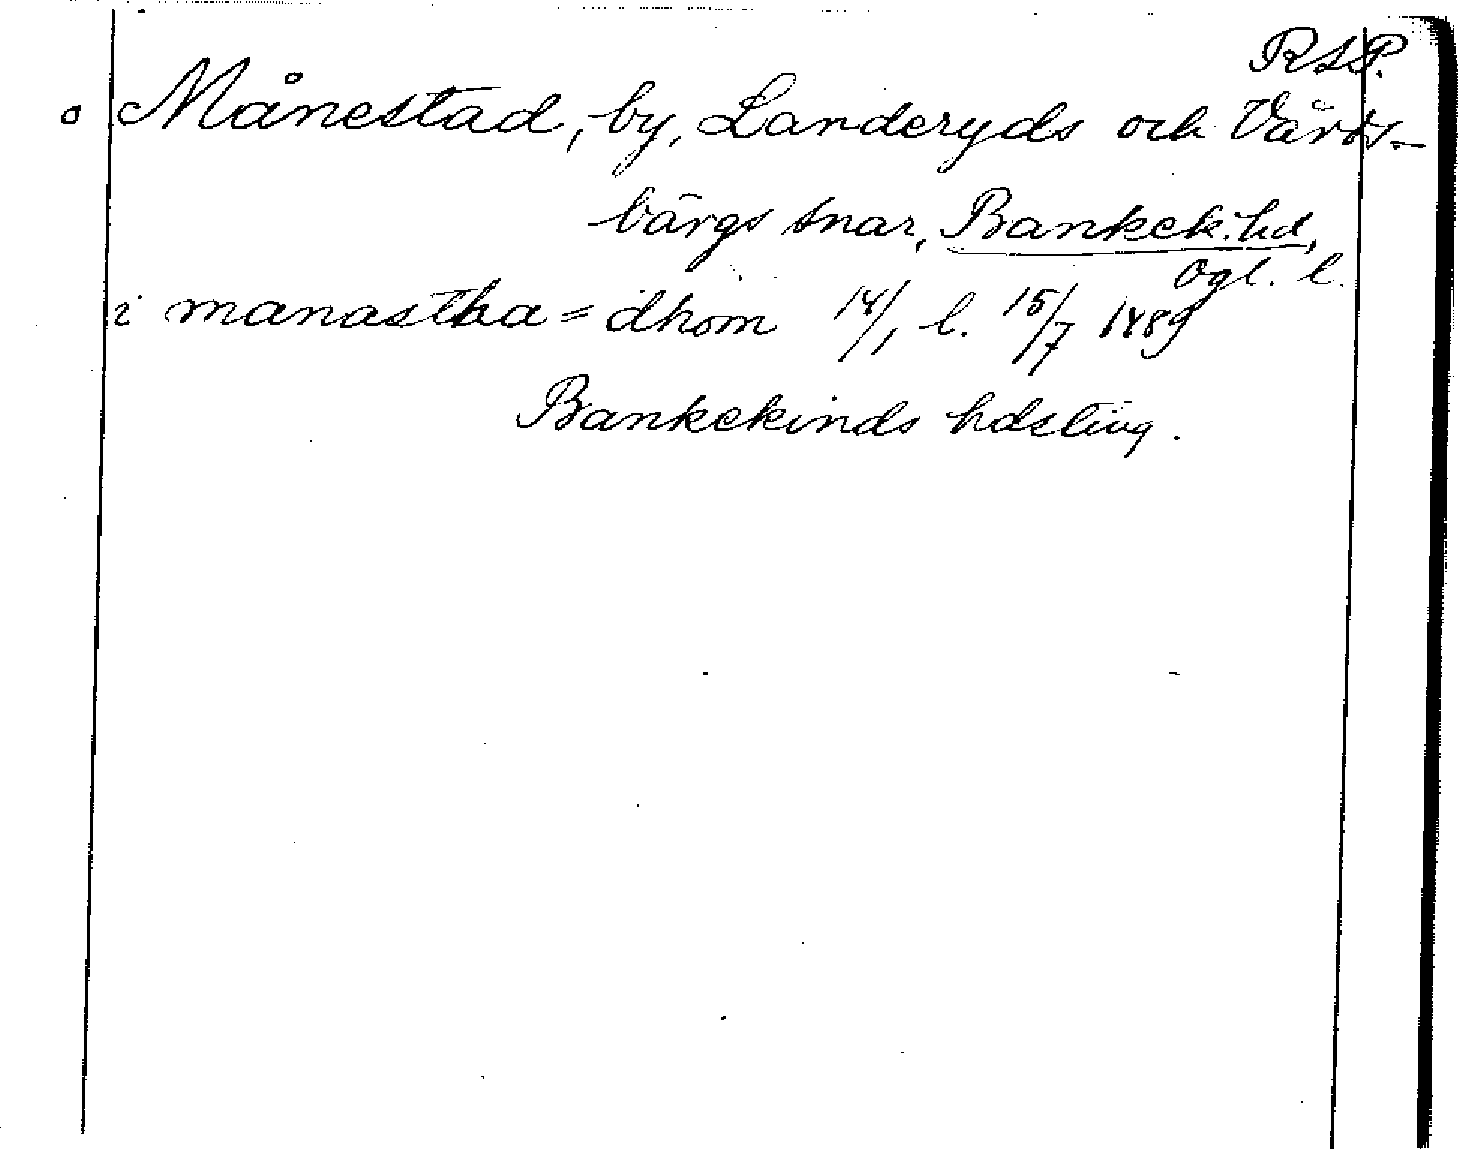 RAP.
o Månestad, by, Landeryds och Vårds-
bärgs snar, Bankek. hd,
Ögl. l.
i manastha = dhom 14/1 l. 15/7 1489
Bankekinds hdsting.